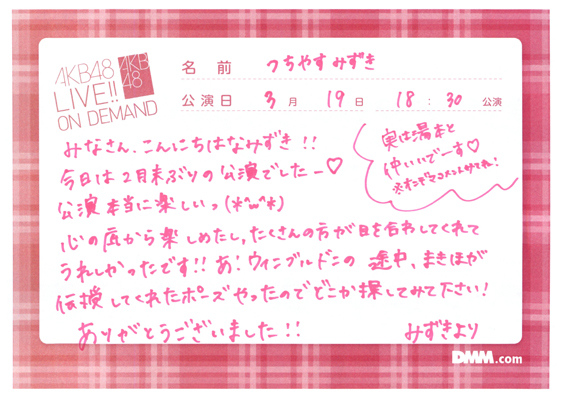 AKB48
LIVE!!
ON DEMAND
AKB
48
名 前 つちやすみずき
公演日 3月 19日 18:30 公演
みなさん、こんにちはなみずき!!
今日は2月末ぶりの公演でしたー♡
公演本当に楽しいっ(*^ω^*)
実は湯本と
仲いいでーす♡
心の底から楽しめたし、たくさんの方が目を合わしてくれて
うれしかったです!! あ!ウィンブルドンの途中、まきほが
伝授してくれたポーズやったのでどこか探してみて下さい!
ありがとうございました!!
みずきより
DMM.com